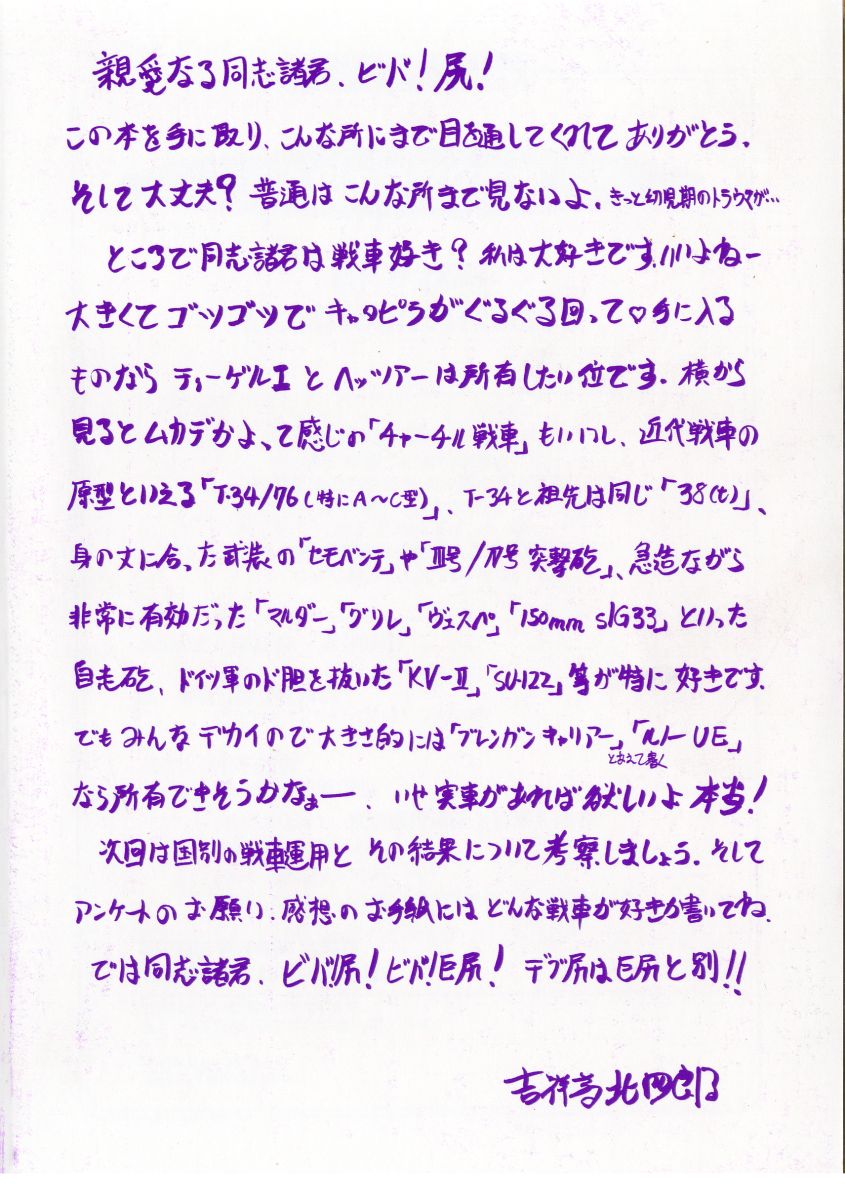 親愛なる同志諸君、ビバ！尻！
この本を手に取り、こんな所にまで目を通してくれてありがとう。
そして大丈夫？普通はこんな所まで見ないよ。きっと幼児期のトラウマが…
ところで同志諸君は戦車好き？私は大好きです。いいよねー
大きくてゴツゴツでキャタピラがぐるぐる回って♡手に入る
ものならティーゲルIとヘッツァーは所有したい位です。横から
見るとムカデかよ、って感じの「チャーチル戦車」もいいし、近代戦車の
原型といえる「T-34/76（特にA～C型）」、T-34と祖先は同じ「38(t)」、
身の丈に合った武装の「セモベンテ」や「III号/IV号突撃砲」、急造ながら
非常に有効だった「マルダー」「グリレ」「ヴェスペ」「150mm sIG33」といった
自走砲、ドイツ軍のド胆を抜いた「KV-II」「SU-122」等が特に好きです。
でもみんなデカイので大きさ的には「ブレンガンキャリアー」「ルノーUE」
とあえて書く
なら所有できそうかなぁー、いせ実車があれば欲しいよ本当！
次回は国別の戦車運用とその結果について考察しましょう。そして
アンケートのお願い、感想のお手紙にはどんな戦車が好きか書いてね。
では同志諸君、ビバ!尻！ビバ!巨尻！デブ尻は巨尻と別!!
吉祥寺北四郎